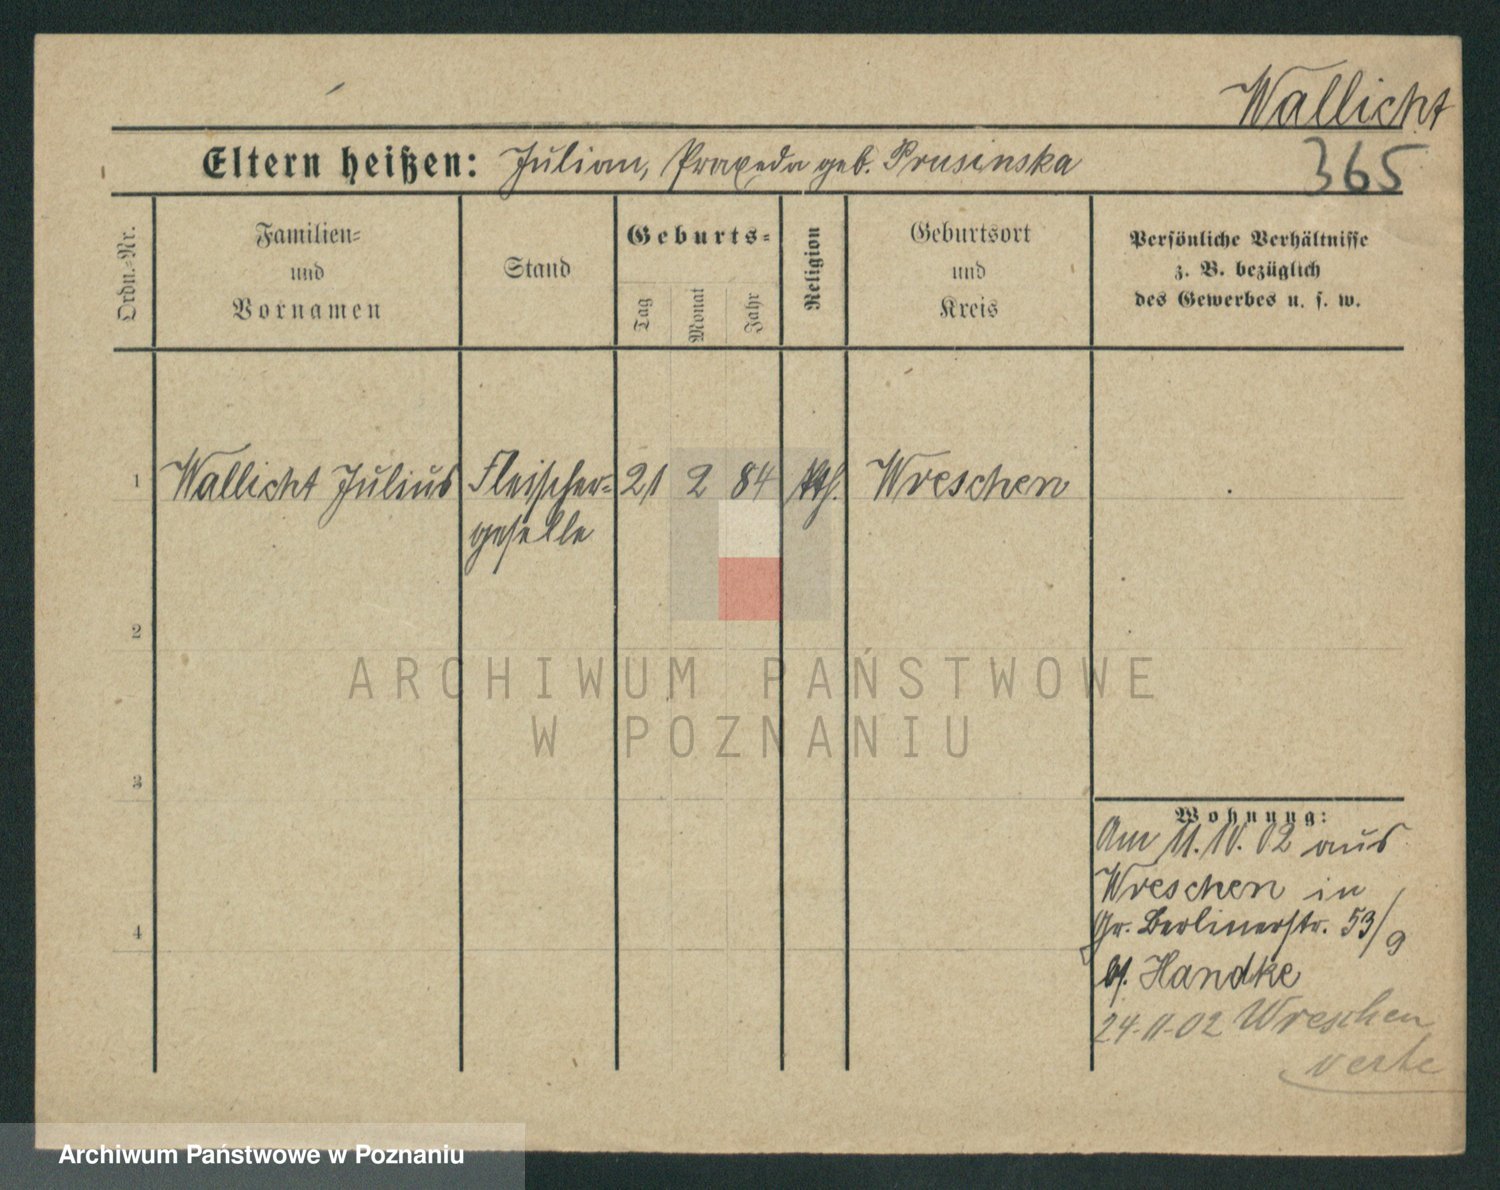 Wallicht
Eltern heißen: Julian, Praxeda geb. Prusinska
365
Ordn.-Nr.
Familien-
und
Vornamen
Stand
Geburts-
Tag
Monat
Jahr
Religion
Geburtsort
und
Kreis
Persönliche Verhältnisse
z. B. bezüglich
des Gewerbes u. s. w.
1
Wallicht Julius
Fleischer-
geselle
21
2
84
kth.
Wreschen
2
ARCHIWUM PAŃSTWOWE
W POZNANIU
3
Wohnung:
Am 11.10.02 aus
Wreschen in
Gr. Berlinerstr. 53/9
4
bf. Handke
24-11-02 Wreschen
verte
Archiwum Państwowe w Poznaniu